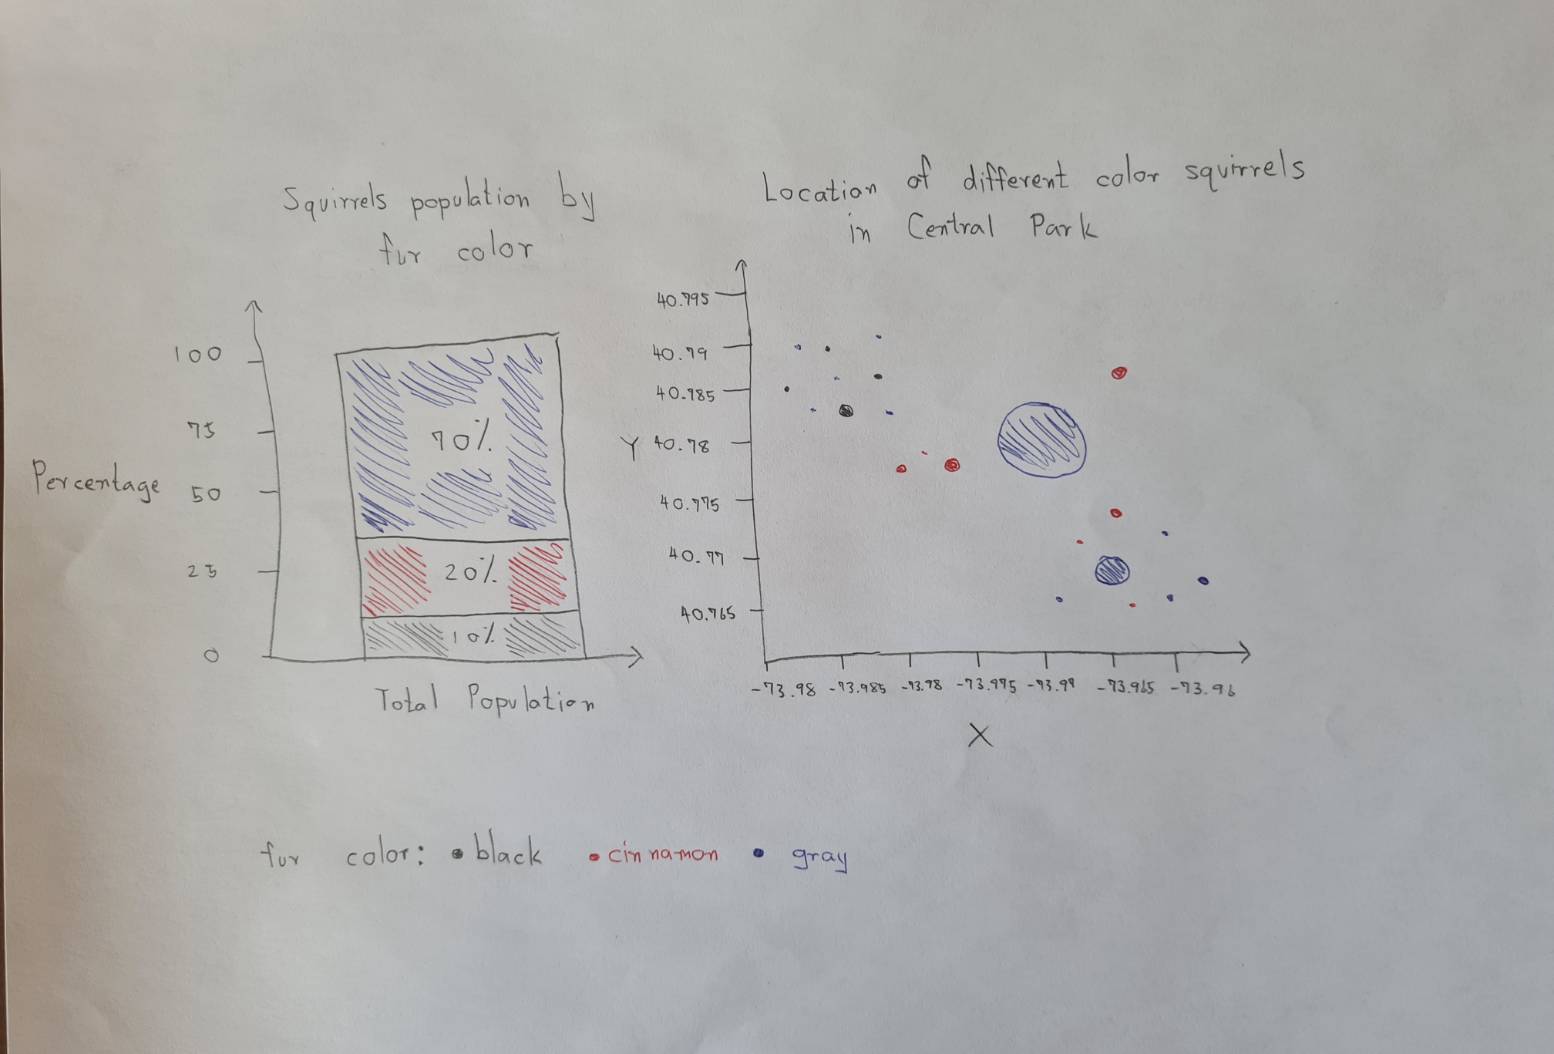 Squirrels population by
fur color
100
75
Percentage
50
25
0
70%
20%
10%
Total Population
Location of different color squirrels
in Central Park
40.795
40.79
40.785
Y 40.78
40.775
40.77
40.765
-73.98 -73.985 -73.98 -73.975 -73.97 -73.965 -73.96
X
fur color: • black • cinnamon • gray